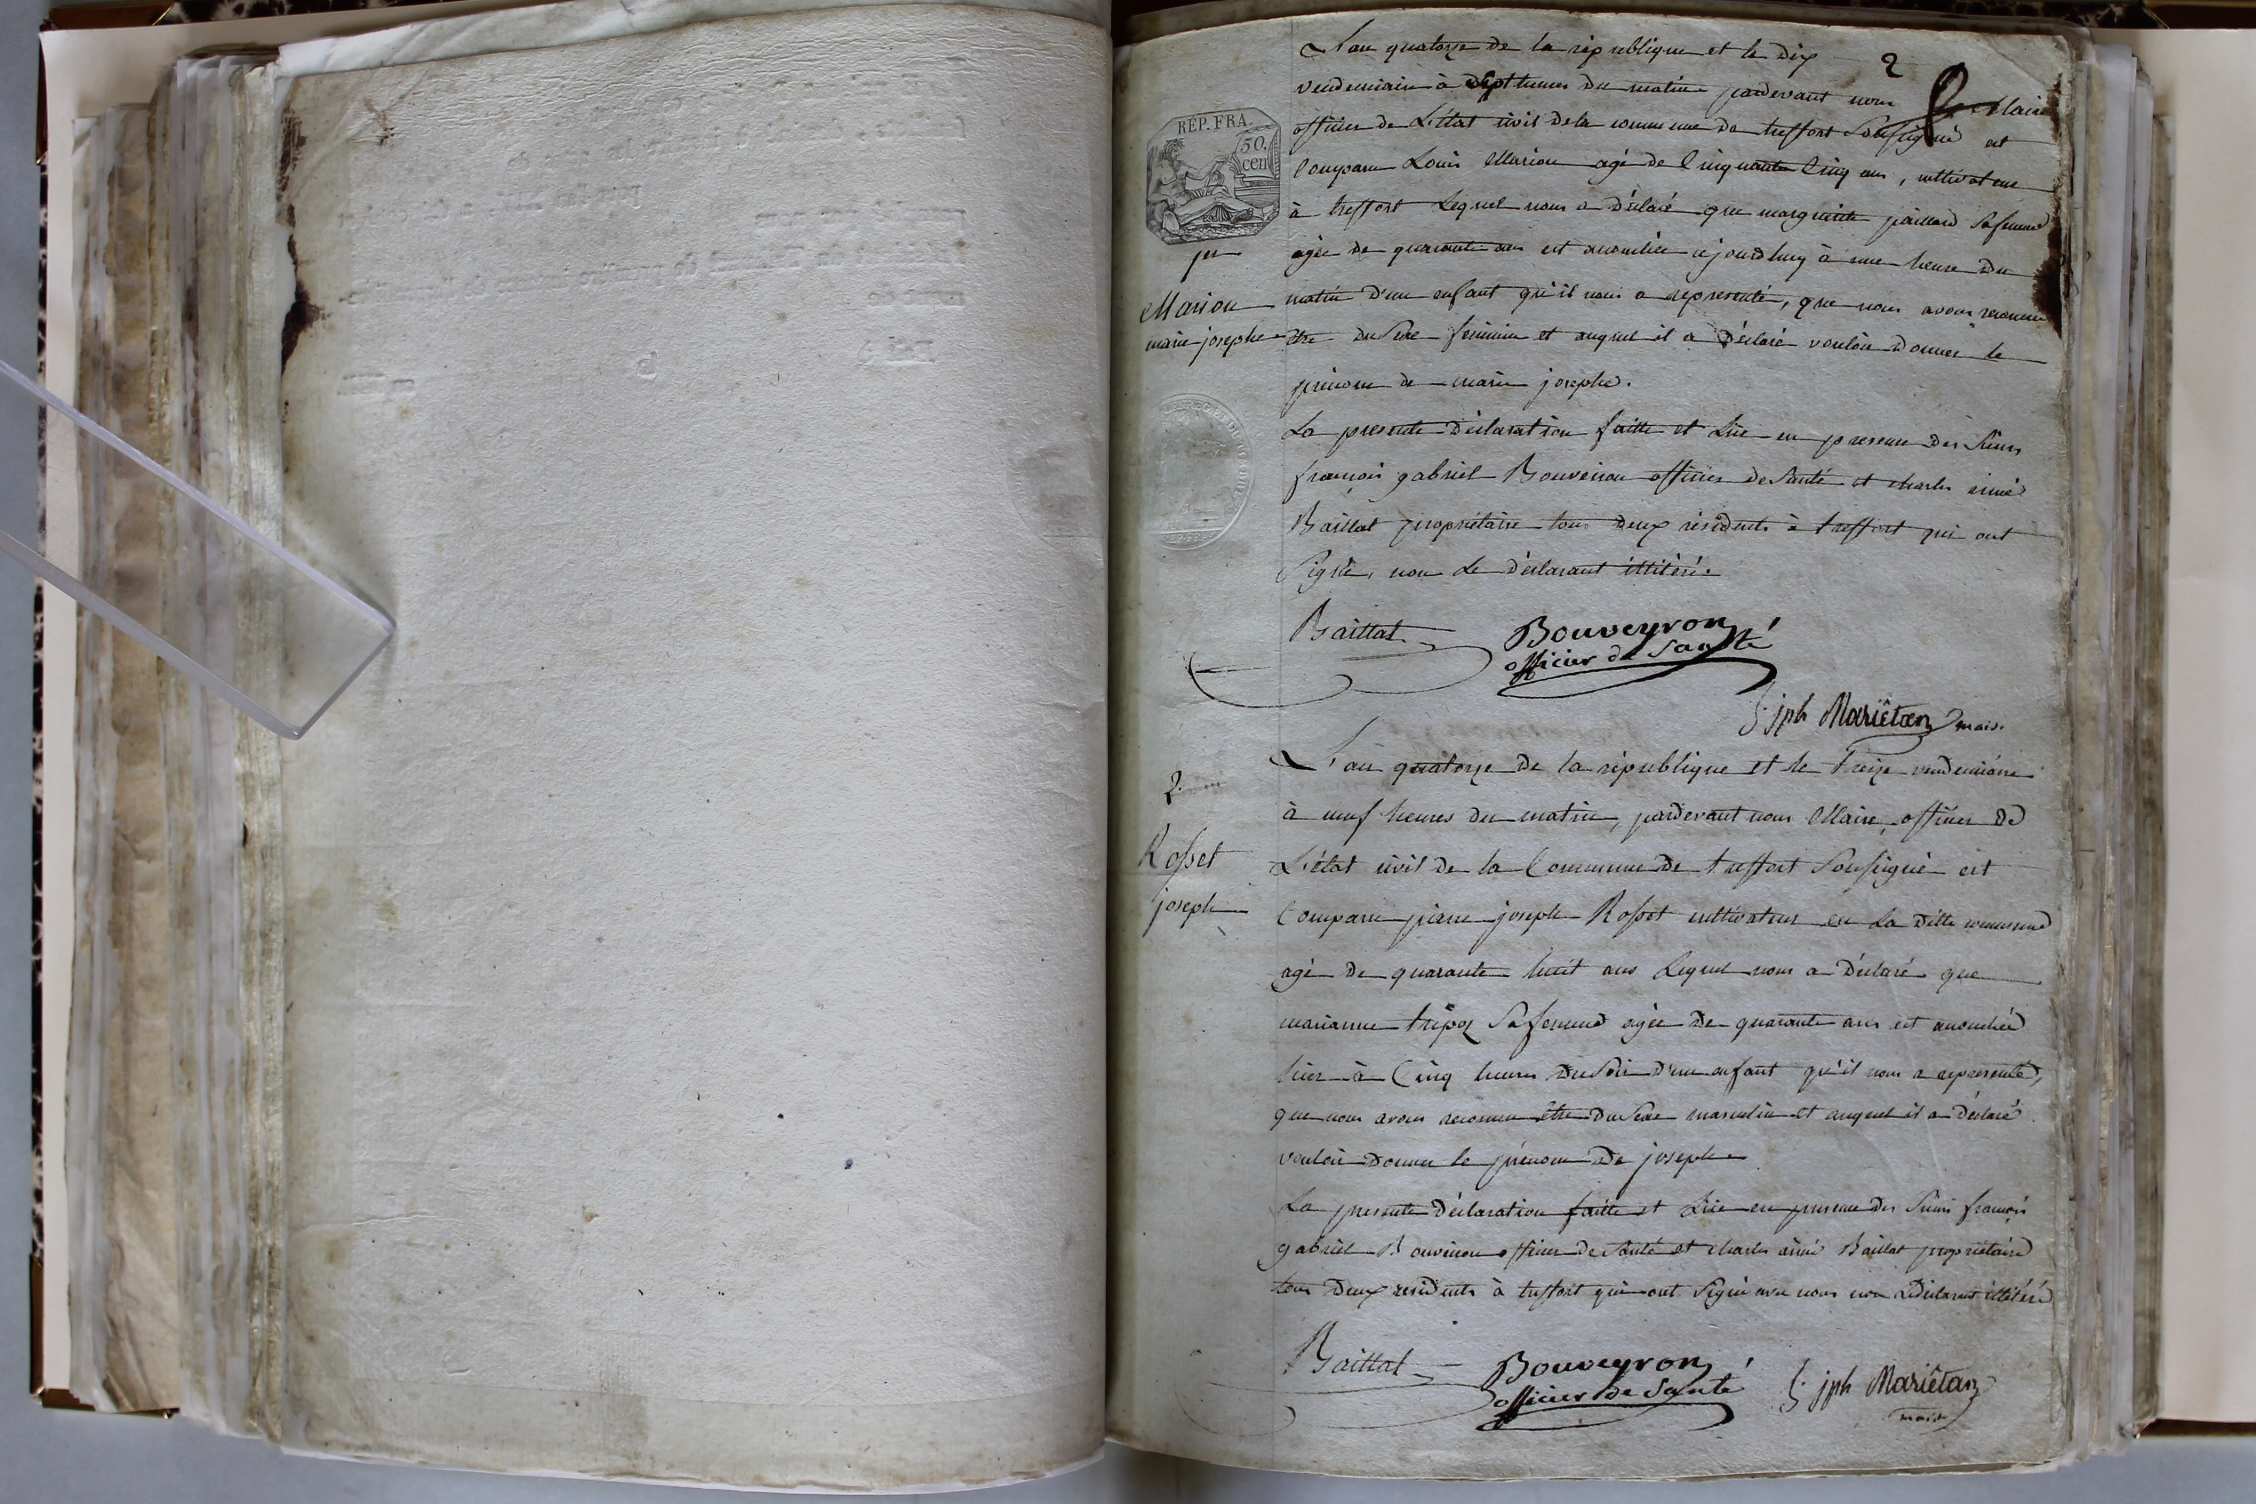 2
L'an quatorze de la république et le dix
vendemiaire à sept heures du matin pardevant nous Maire
officier de L'état civil de la commune de treffort Soussigné est
Comparu Louis Marion agé de Cinquante Cinq ans, cultivateur
à treffort Lequel nous a déclaré que margueritte paillard Sa femme
agée de quarante ans est accouchée cejourdhuy à une heure du
matin d'un enfant qu'il nous a representé, que nous avons reconnu
être du Sexe feminin et auquel il a déclaré vouloir donner le
prénom de marie josephe.
La presente déclaration faitte et Lüe en presence des Sieurs
françois gabriel Bouveiron officier de Santé et charles aimé
Baillat propriétaire tous deux résidents à treffort qui ont
Signé, non Le déclarant illitéré.
REP. FRA.
50.
cen
1er
Marion
marie josephe
Baillat
Bouveyron
officier de Santé
jph Mariétan maire
2.
Rosset
joseph
L'an quatorze de la république et le treize vendemiaire
à neuf heures du matin, pardevant nous Maire, officier de
L'état civil de la Commune de treffort Soussigné est
Comparu pierre joseph Rosset cultivateur en La ditte commune
agé de quarante huit ans Lequel nous a déclaré que
marianne tripoz Sa femme agée de quarante ans est accouchée
hier à Cinq heures du Soir d'un enfant qu'il nous a representé,
que nous avons reconnu être du Sexe masculin et auquel il a déclaré
vouloir donner le prénom de joseph
La presente déclaration faitte et Lüe en presence des Sieurs françois
gabriel Bouveiron officier de Santé et charles aimé Baillat propriétaire
tous deux residents à treffort qui ont Signé avec nous non Le déclarant illétéré
Baillat
Bouveyron
officier de Santé
jph Mariétan
maire